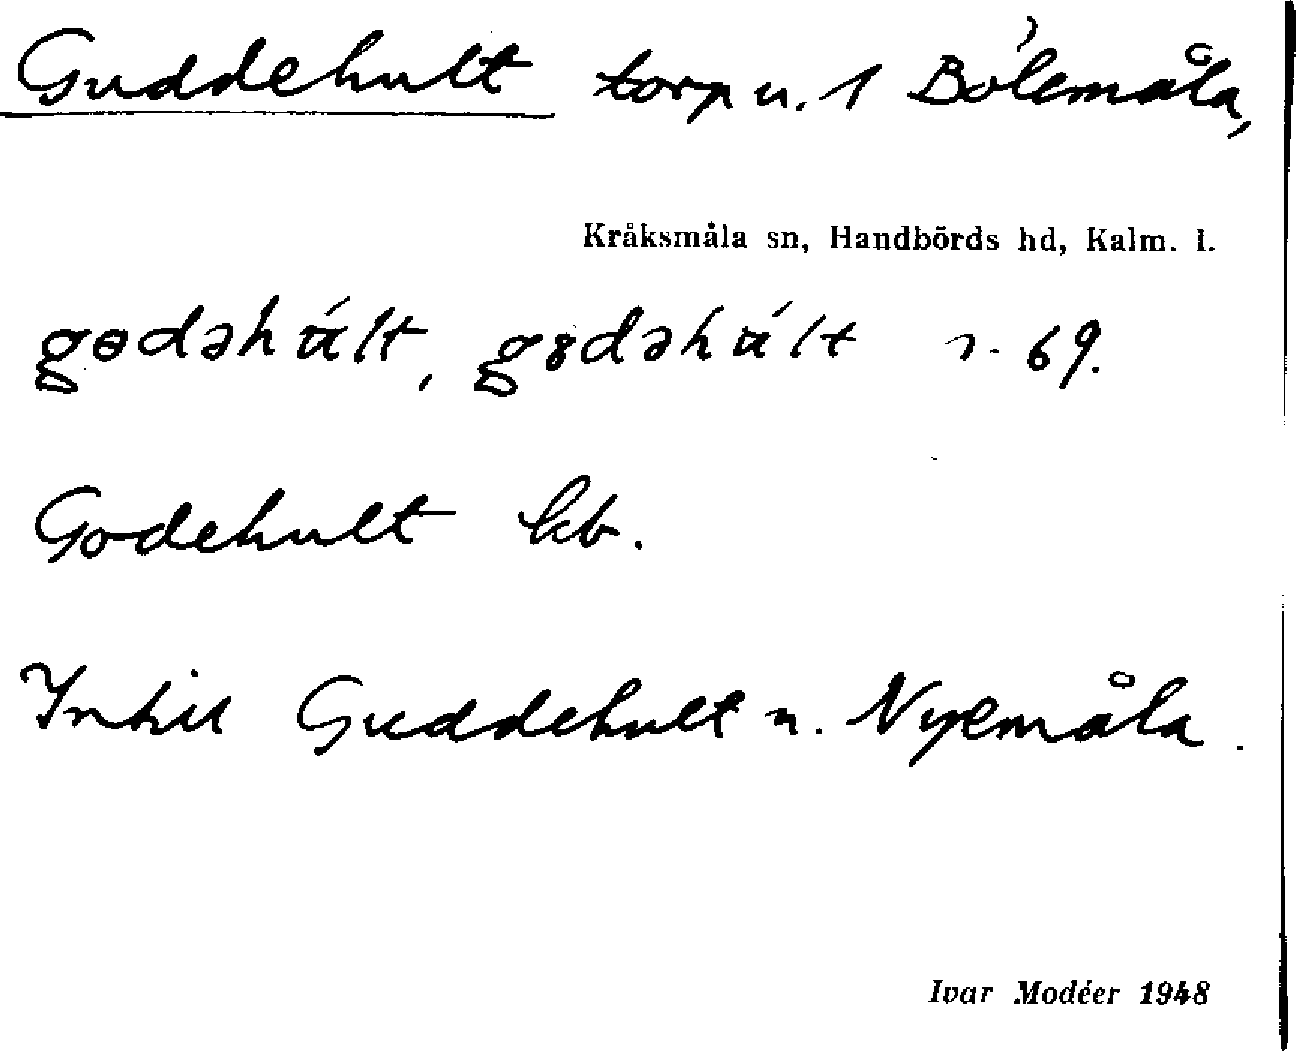 Guddehult torp u. 1 Bölemåla,
Kråksmåla sn, Handbörds hd, Kalm. l.
gɵdəhúlt, g8dəhúlt r. 69.
Godehult kb.
Guddehult n. Nyemåla.
Ivar Modéer 1948